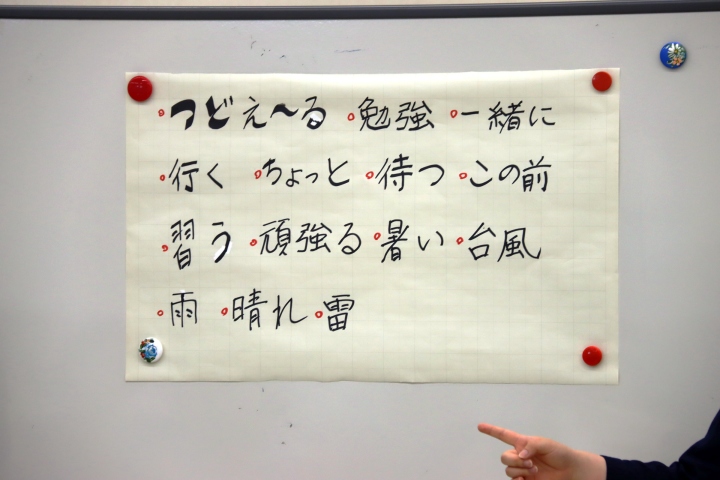 ・つどえ～る ・勉強 ・一緒に
・行く ・ちょっと ・待つ ・この前
・習う ・頑強る ・暑い ・台風
・雨 ・晴れ ・雷